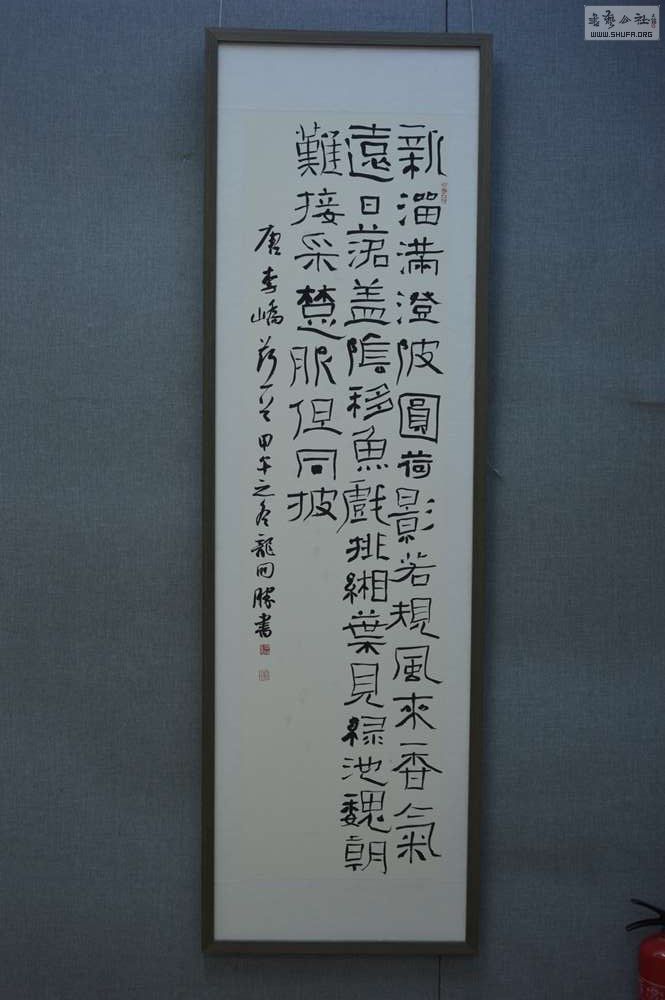 書藝公社
WWW.SHUFA.ORG
新溜滿澄陂圓荷影若規風來香氣
遠日落盖陰移魚戲排緗葉見綠池魏朝
難接采楚服但同披
唐李嶠荷一首甲午之冬龍開勝書